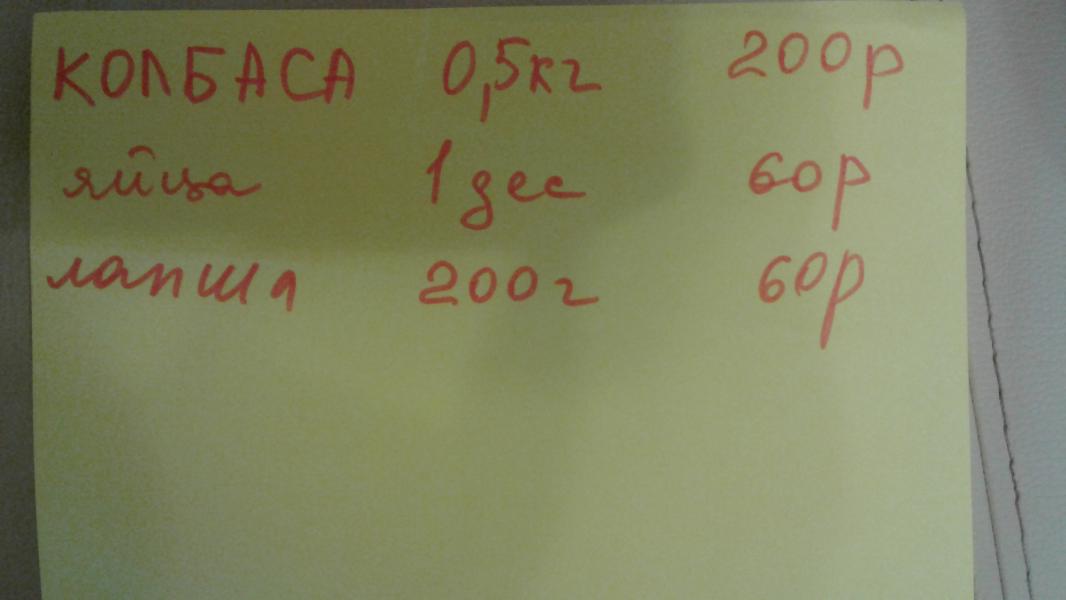 КОЛБАСА 0,5кг 200р
яйца 1 дес 60р
лапша 200г 60р